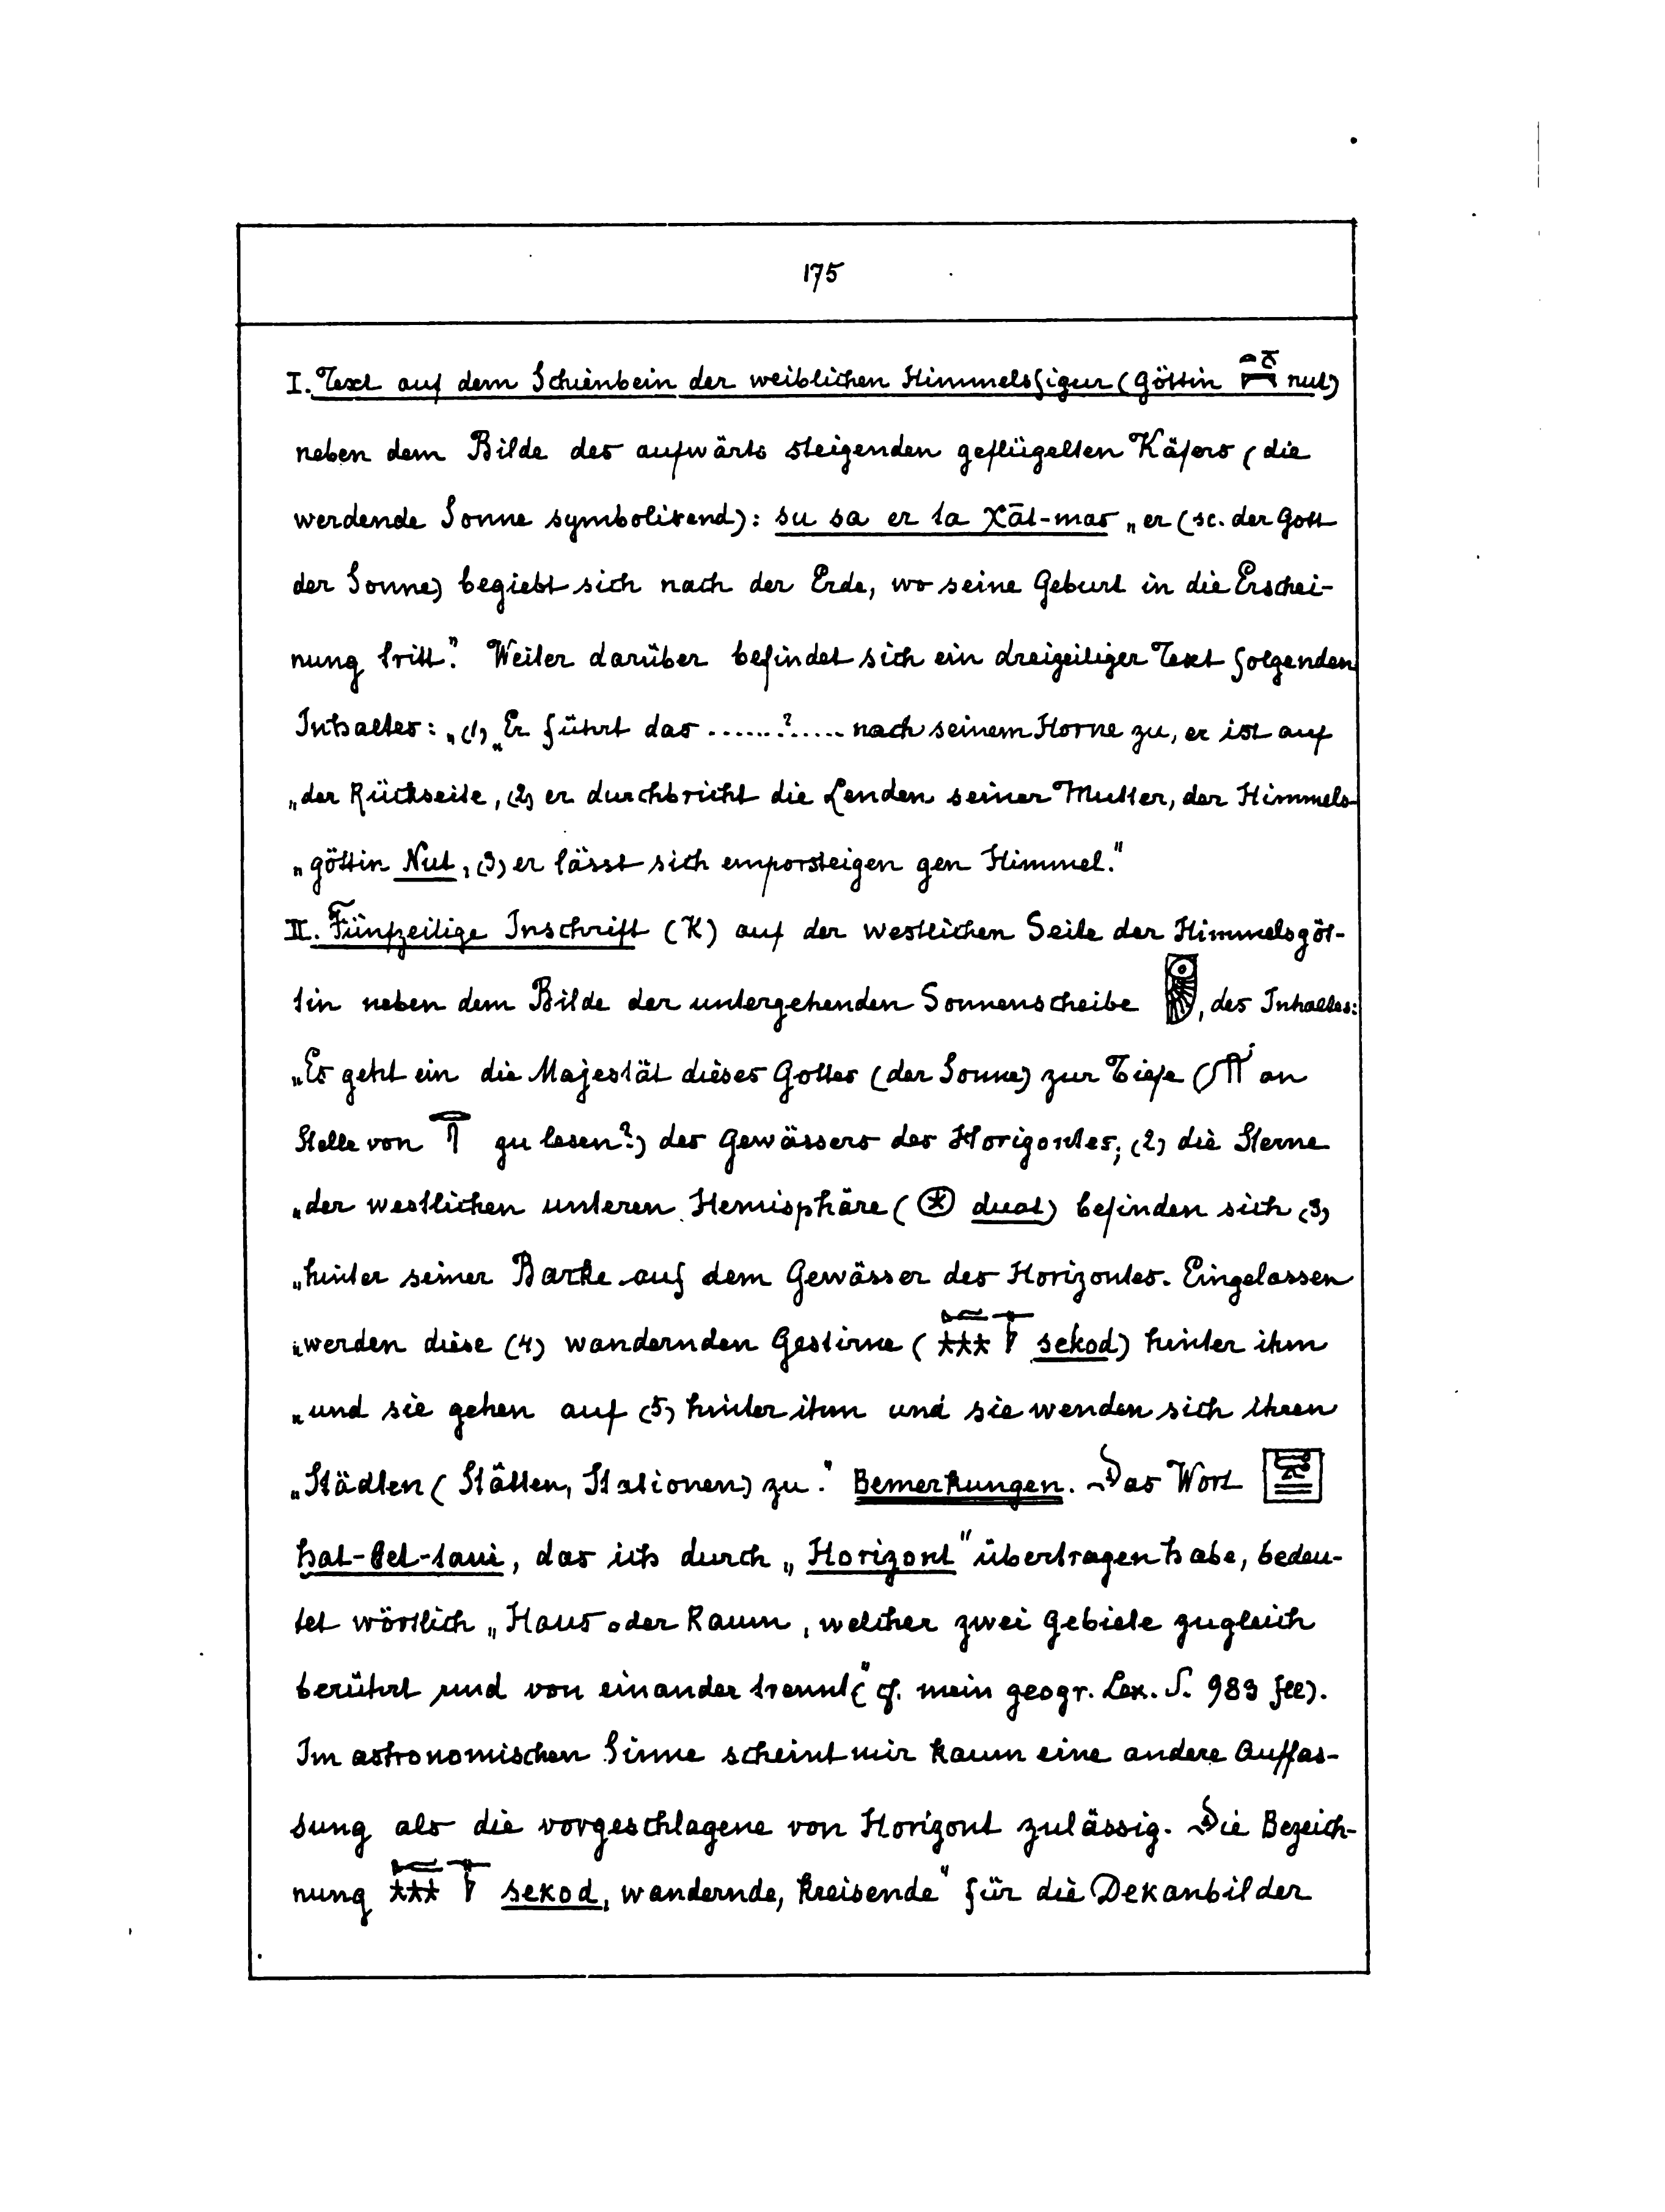 175
I. Text auf dem Schienbein der weiblichen Himmelsfigur (Göttin nut)
neben dem Bilde des aufwärts steigenden geflügelten Käfers (die
werdende Sonne symbolisirend): su sa er ta χāt-mas „er (sc. der Gott
der Sonne) begiebt sich nach der Erde, wo seine Geburt in die Erschei-
nung tritt." Weiter darüber befindet sich ein dreizeiliger Text folgenden
Inhaltes: „(1) „Er führt das ......?..... nach seinem Horne zu, er ist auf
„der Rückseite, (2) er durchbricht die Lenden seiner Mutter, der Himmels-
„göttin Nut, (3) er lässt sich emporsteigen gen Himmel."
II. Fünfzeilige Inschrift (K) auf der westlichen Seite der Himmelsgöt-
tin neben dem Bilde der untergehenden Sonnenscheibe , des Inhaltes:
„Es geht ein die Majestät dieses Gottes (der Sonne) zur Tiefe ( an
Stelle von zu lesen?) des Gewässers des Horizontes; (2) die Sterne
„der westlichen unteren Hemisphäre ( dual) befinden sich (3)
„hinter seiner Barke auf dem Gewässer des Horizontes. Eingelassen
„werden diese (4) wandernden Gestirne ( sekod) hinter ihm
„und sie gehen auf (5) hinter ihm und sie wenden sich ihren
„Städten (Stätten, Stationen) zu." Bemerkungen. Das Wort
hat-bet-taui, das ich durch „Horizont" übertragen habe, bedeu-
tet wörtlich „Haus oder Raum, welcher zwei Gebiete zugleich
berührt und von einander trennt" (cf. mein geogr. Lex. S. 983 fll).
Im astronomischen Sinne scheint mir kaum eine andere Auffas-
sung als die vorgeschlagene von Horizont zulässig. Die Bezeich-
nung sekod, wandernde, kreisende" für die Dekanbilder